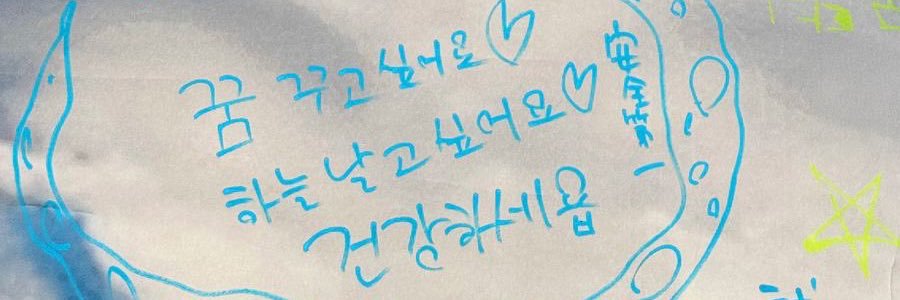 꿈 꾸고 싶어요♡
하늘 날고 싶어요♡
건강하세욥
安全第一